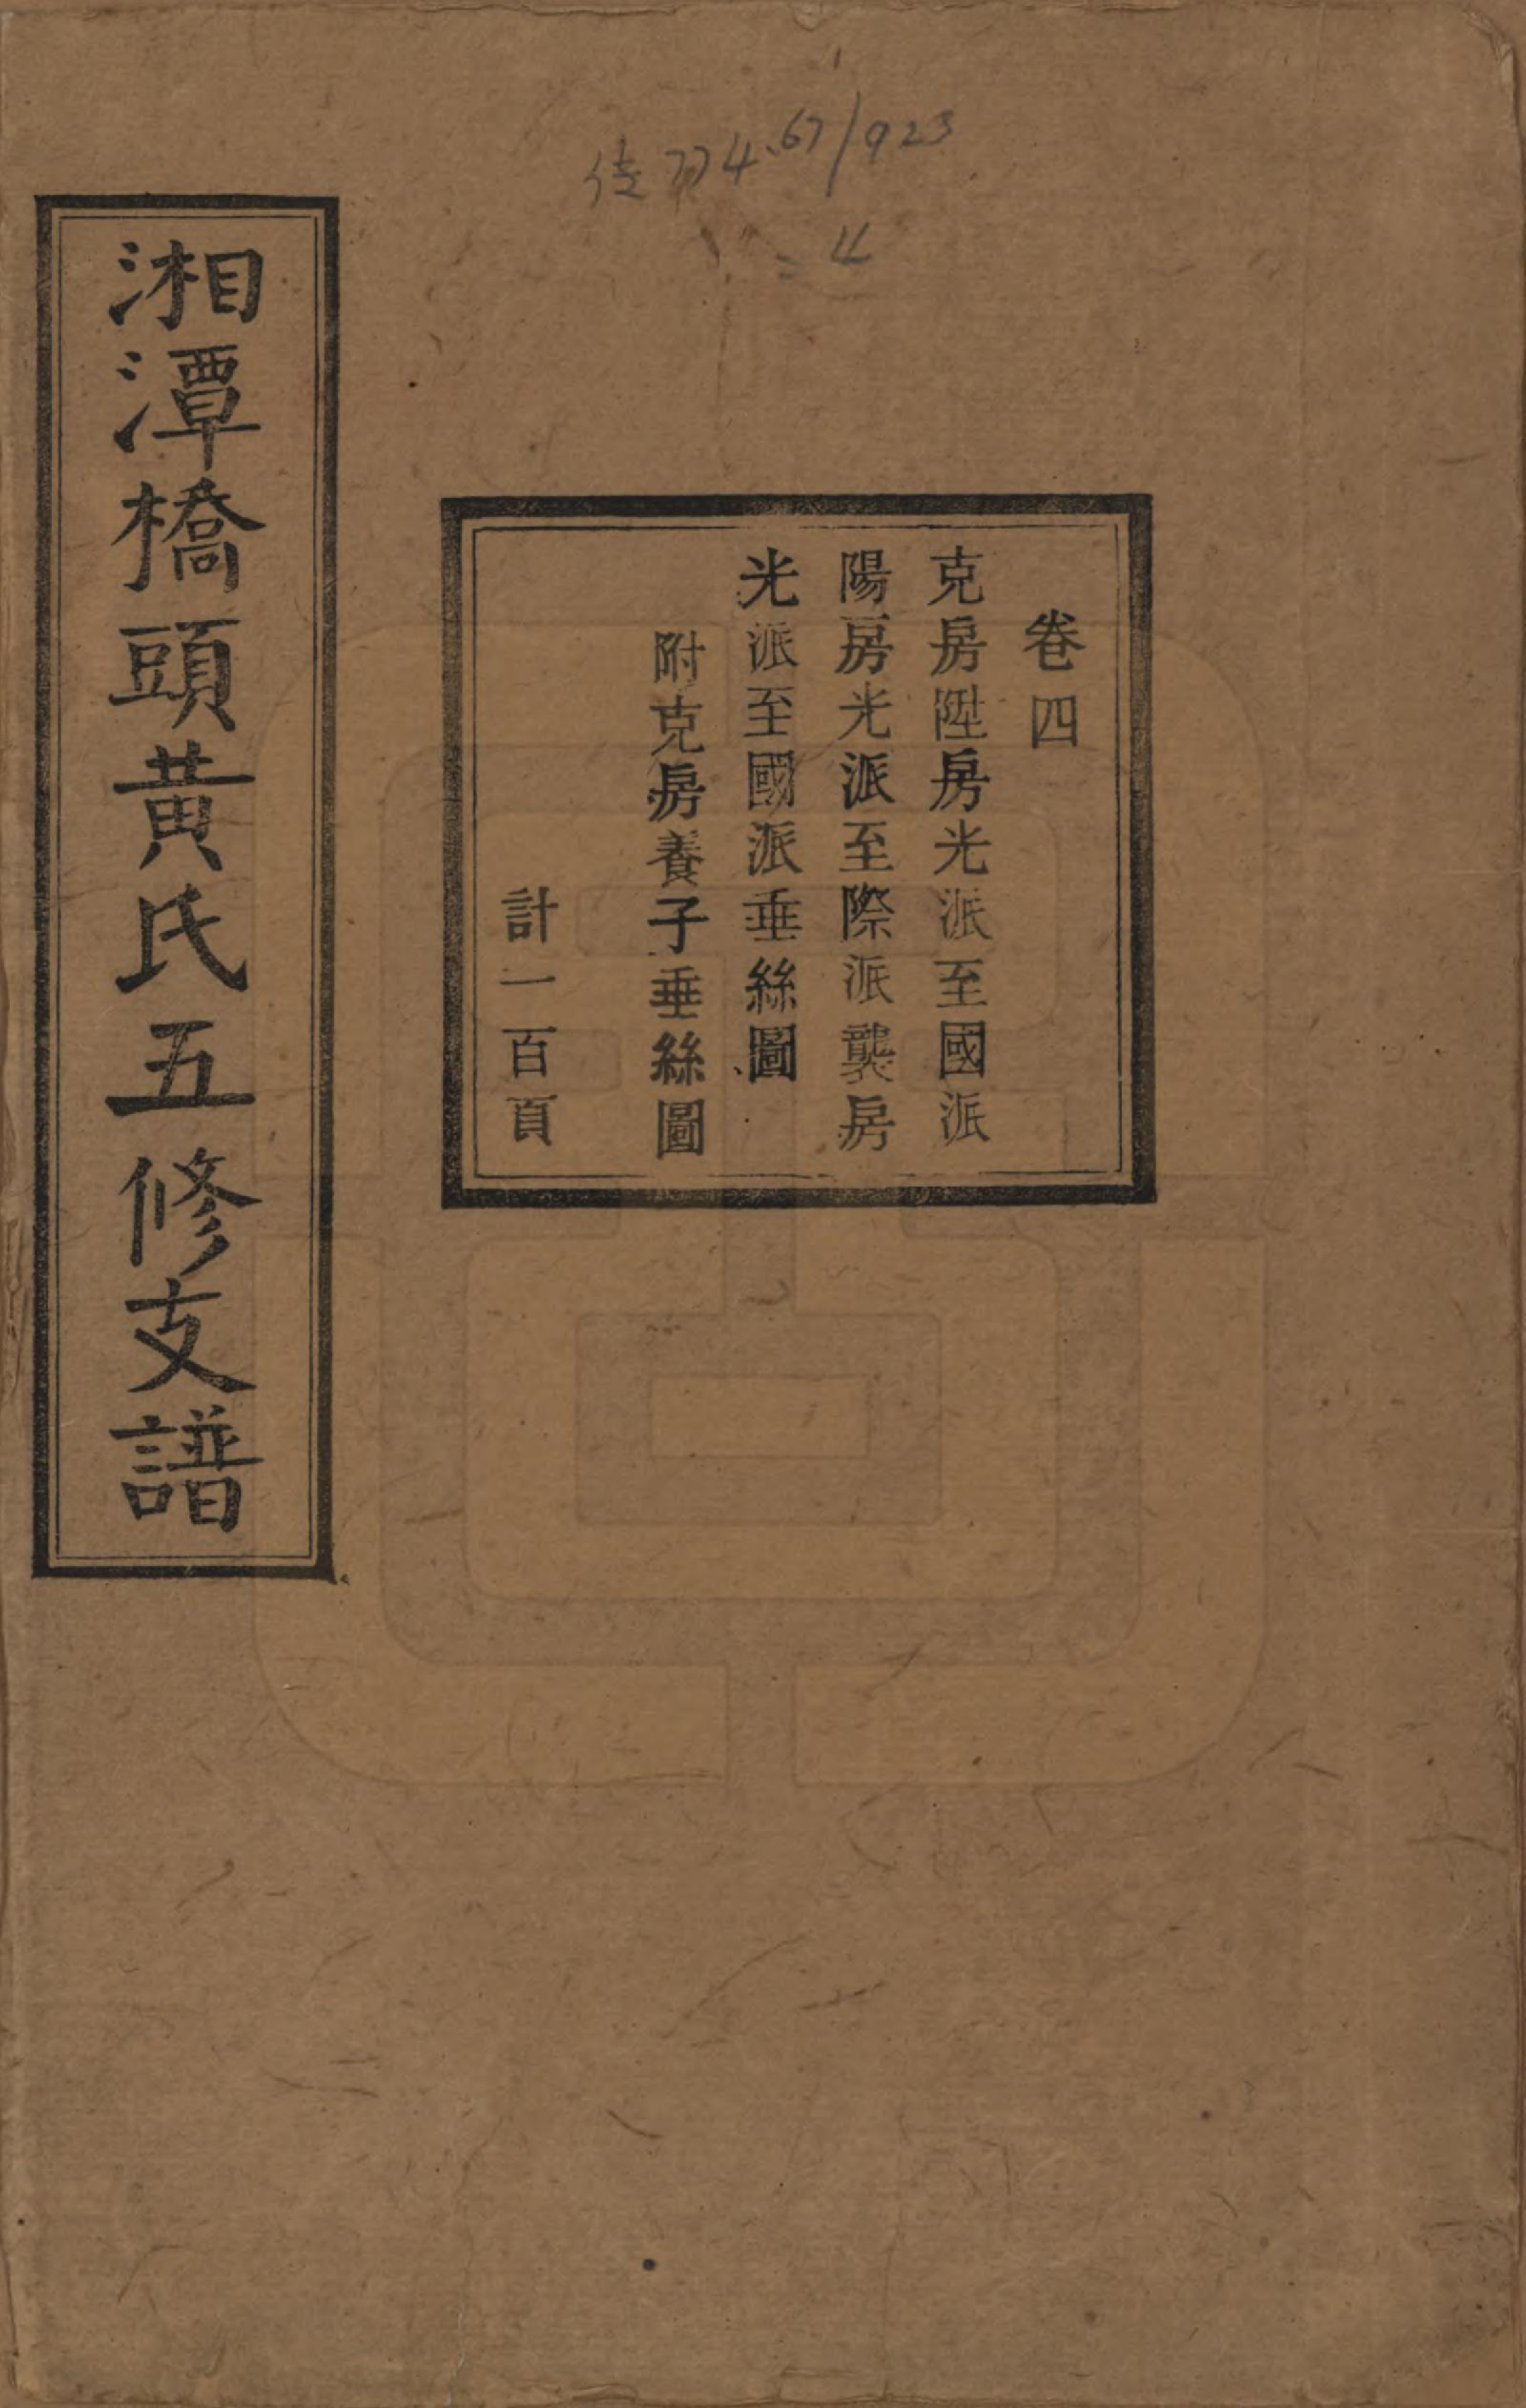 774.67/923
=4
卷四
克房陞房光派至國派
陽房光派至際派龔房
光派至國派垂絲圖
附克房養子垂絲圖
計一百頁
湘潭橋頭黃氏五修支譜